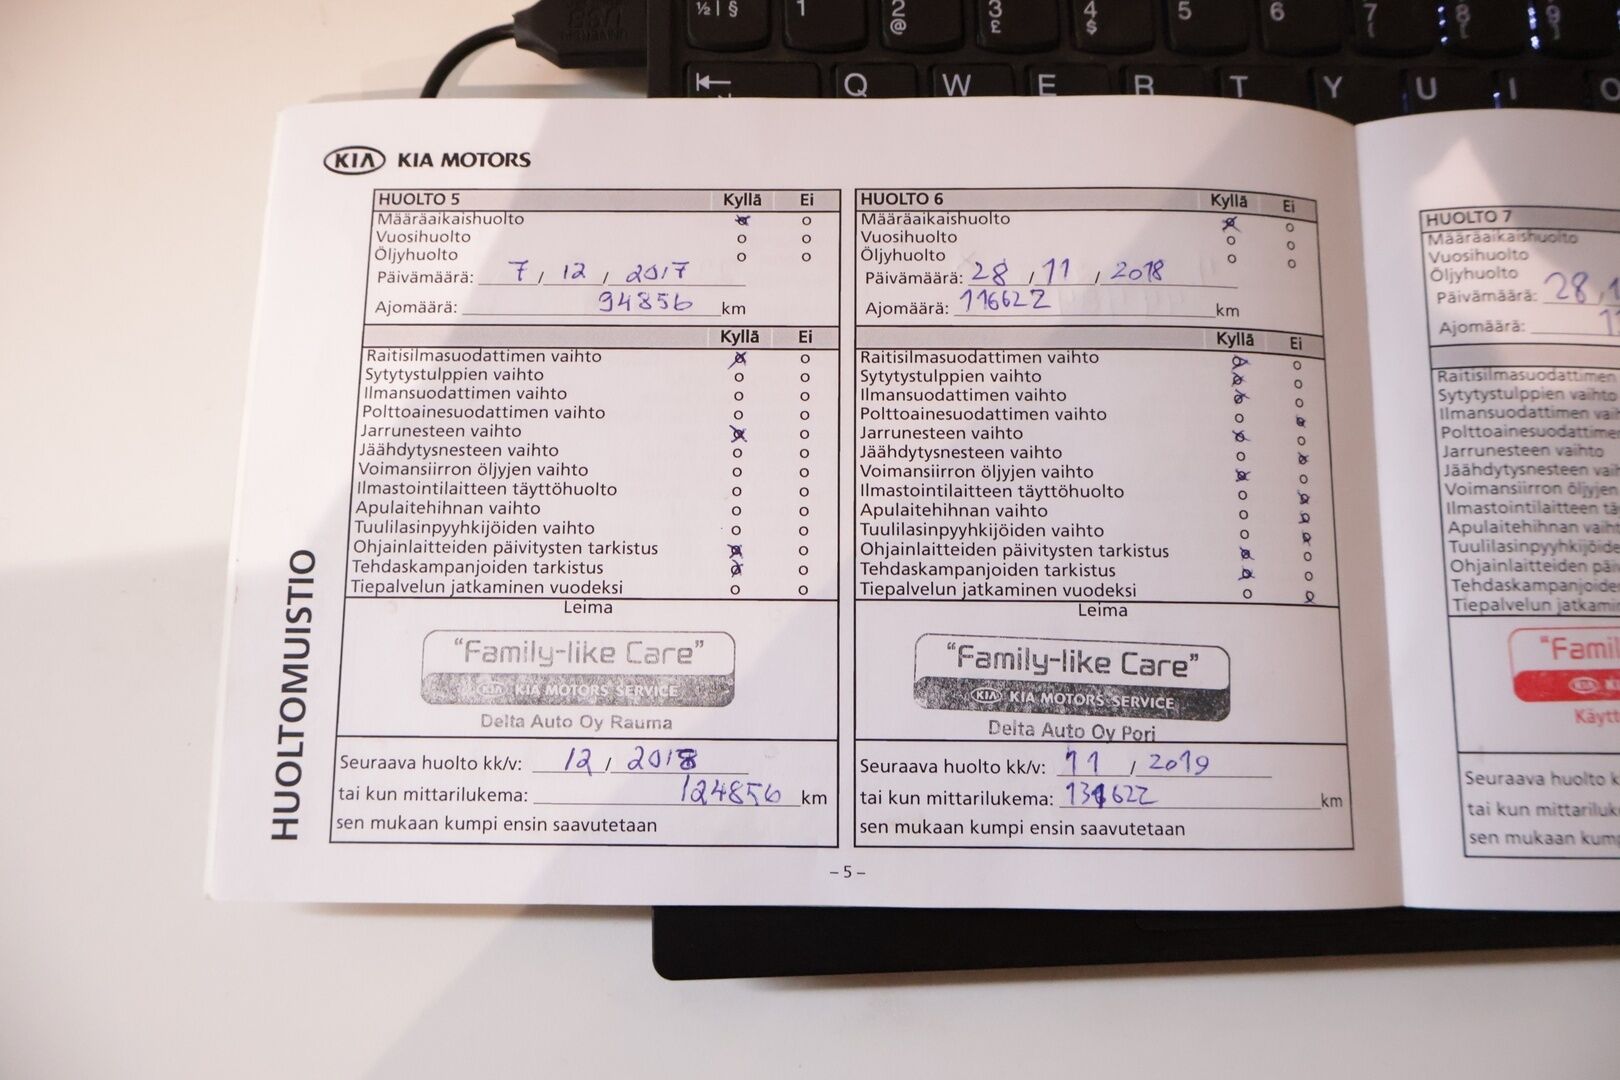 ½ | § 1 2 @ 3 £ 4 $ 5 6 7 8 9
Q W E R T Y U I O
KIA KIA MOTORS
HUOLTOMUISTIO
HUOLTO 5 Kyllä Ei
Määräaikaishuolto
Vuosihuolto
Öljyhuolto
Päivämäärä: 7 / 12 / 2017
Ajomäärä: 94856 km
Kyllä Ei
Raitisilmasuodattimen vaihto
Sytytystulppien vaihto
Ilmansuodattimen vaihto
Polttoainesuodattimen vaihto
Jarrunesteen vaihto
Jäähdytysnesteen vaihto
Voimansiirron öljyjen vaihto
Ilmastointilaitteen täyttöhuolto
Apulaitehihnan vaihto
Tuulilasinpyyhkijöiden vaihto
Ohjainlaitteiden päivitysten tarkistus
Tehdaskampanjoiden tarkistus
Tiepalvelun jatkaminen vuodeksi
Leima
"Family-like Care"
KIA KIA MOTORS SERVICE
Delta Auto Oy Rauma
Seuraava huolto kk/v: 12 / 2018
tai kun mittarilukema: 124856 km
sen mukaan kumpi ensin saavutetaan
HUOLTO 6 Kyllä Ei
Määräaikaishuolto
Vuosihuolto
Öljyhuolto
Päivämäärä: 28 / 11 / 2018
Ajomäärä: 116622 km
Kyllä Ei
Raitisilmasuodattimen vaihto
Sytytystulppien vaihto
Ilmansuodattimen vaihto
Polttoainesuodattimen vaihto
Jarrunesteen vaihto
Jäähdytysnesteen vaihto
Voimansiirron öljyjen vaihto
Ilmastointilaitteen täyttöhuolto
Apulaitehihnan vaihto
Tuulilasinpyyhkijöiden vaihto
Ohjainlaitteiden päivitysten tarkistus
Tehdaskampanjoiden tarkistus
Tiepalvelun jatkaminen vuodeksi
Leima
"Family-like Care"
KIA KIA MOTORS SERVICE
Delta Auto Oy Pori
Seuraava huolto kk/v: 11 / 2019
tai kun mittarilukema: 131622 km
sen mukaan kumpi ensin saavutetaan
– 5 –
HUOLTO 7
Määräaikaishuolto
Vuosihuolto
Öljyhuolto
Päivämäärä: 28
Ajomäärä:
Raitisilmasuodattimen
Sytytystulppien vaihto
Ilmansuodattimen
Polttoainesuodattimen
Jarrunesteen vaihto
Jäähdytysnesteen
Voimansiirron öljyjen
Ilmastointilaitteen
Apulaitehihnan
Tuulilasinpyyhkijöide
Ohjainlaitteiden
Tehdaskampanjoiden
Tiepalvelun
"Famil
KIA
Käytt
Seuraava huolto
tai kun mittariluk
sen mukaan kum